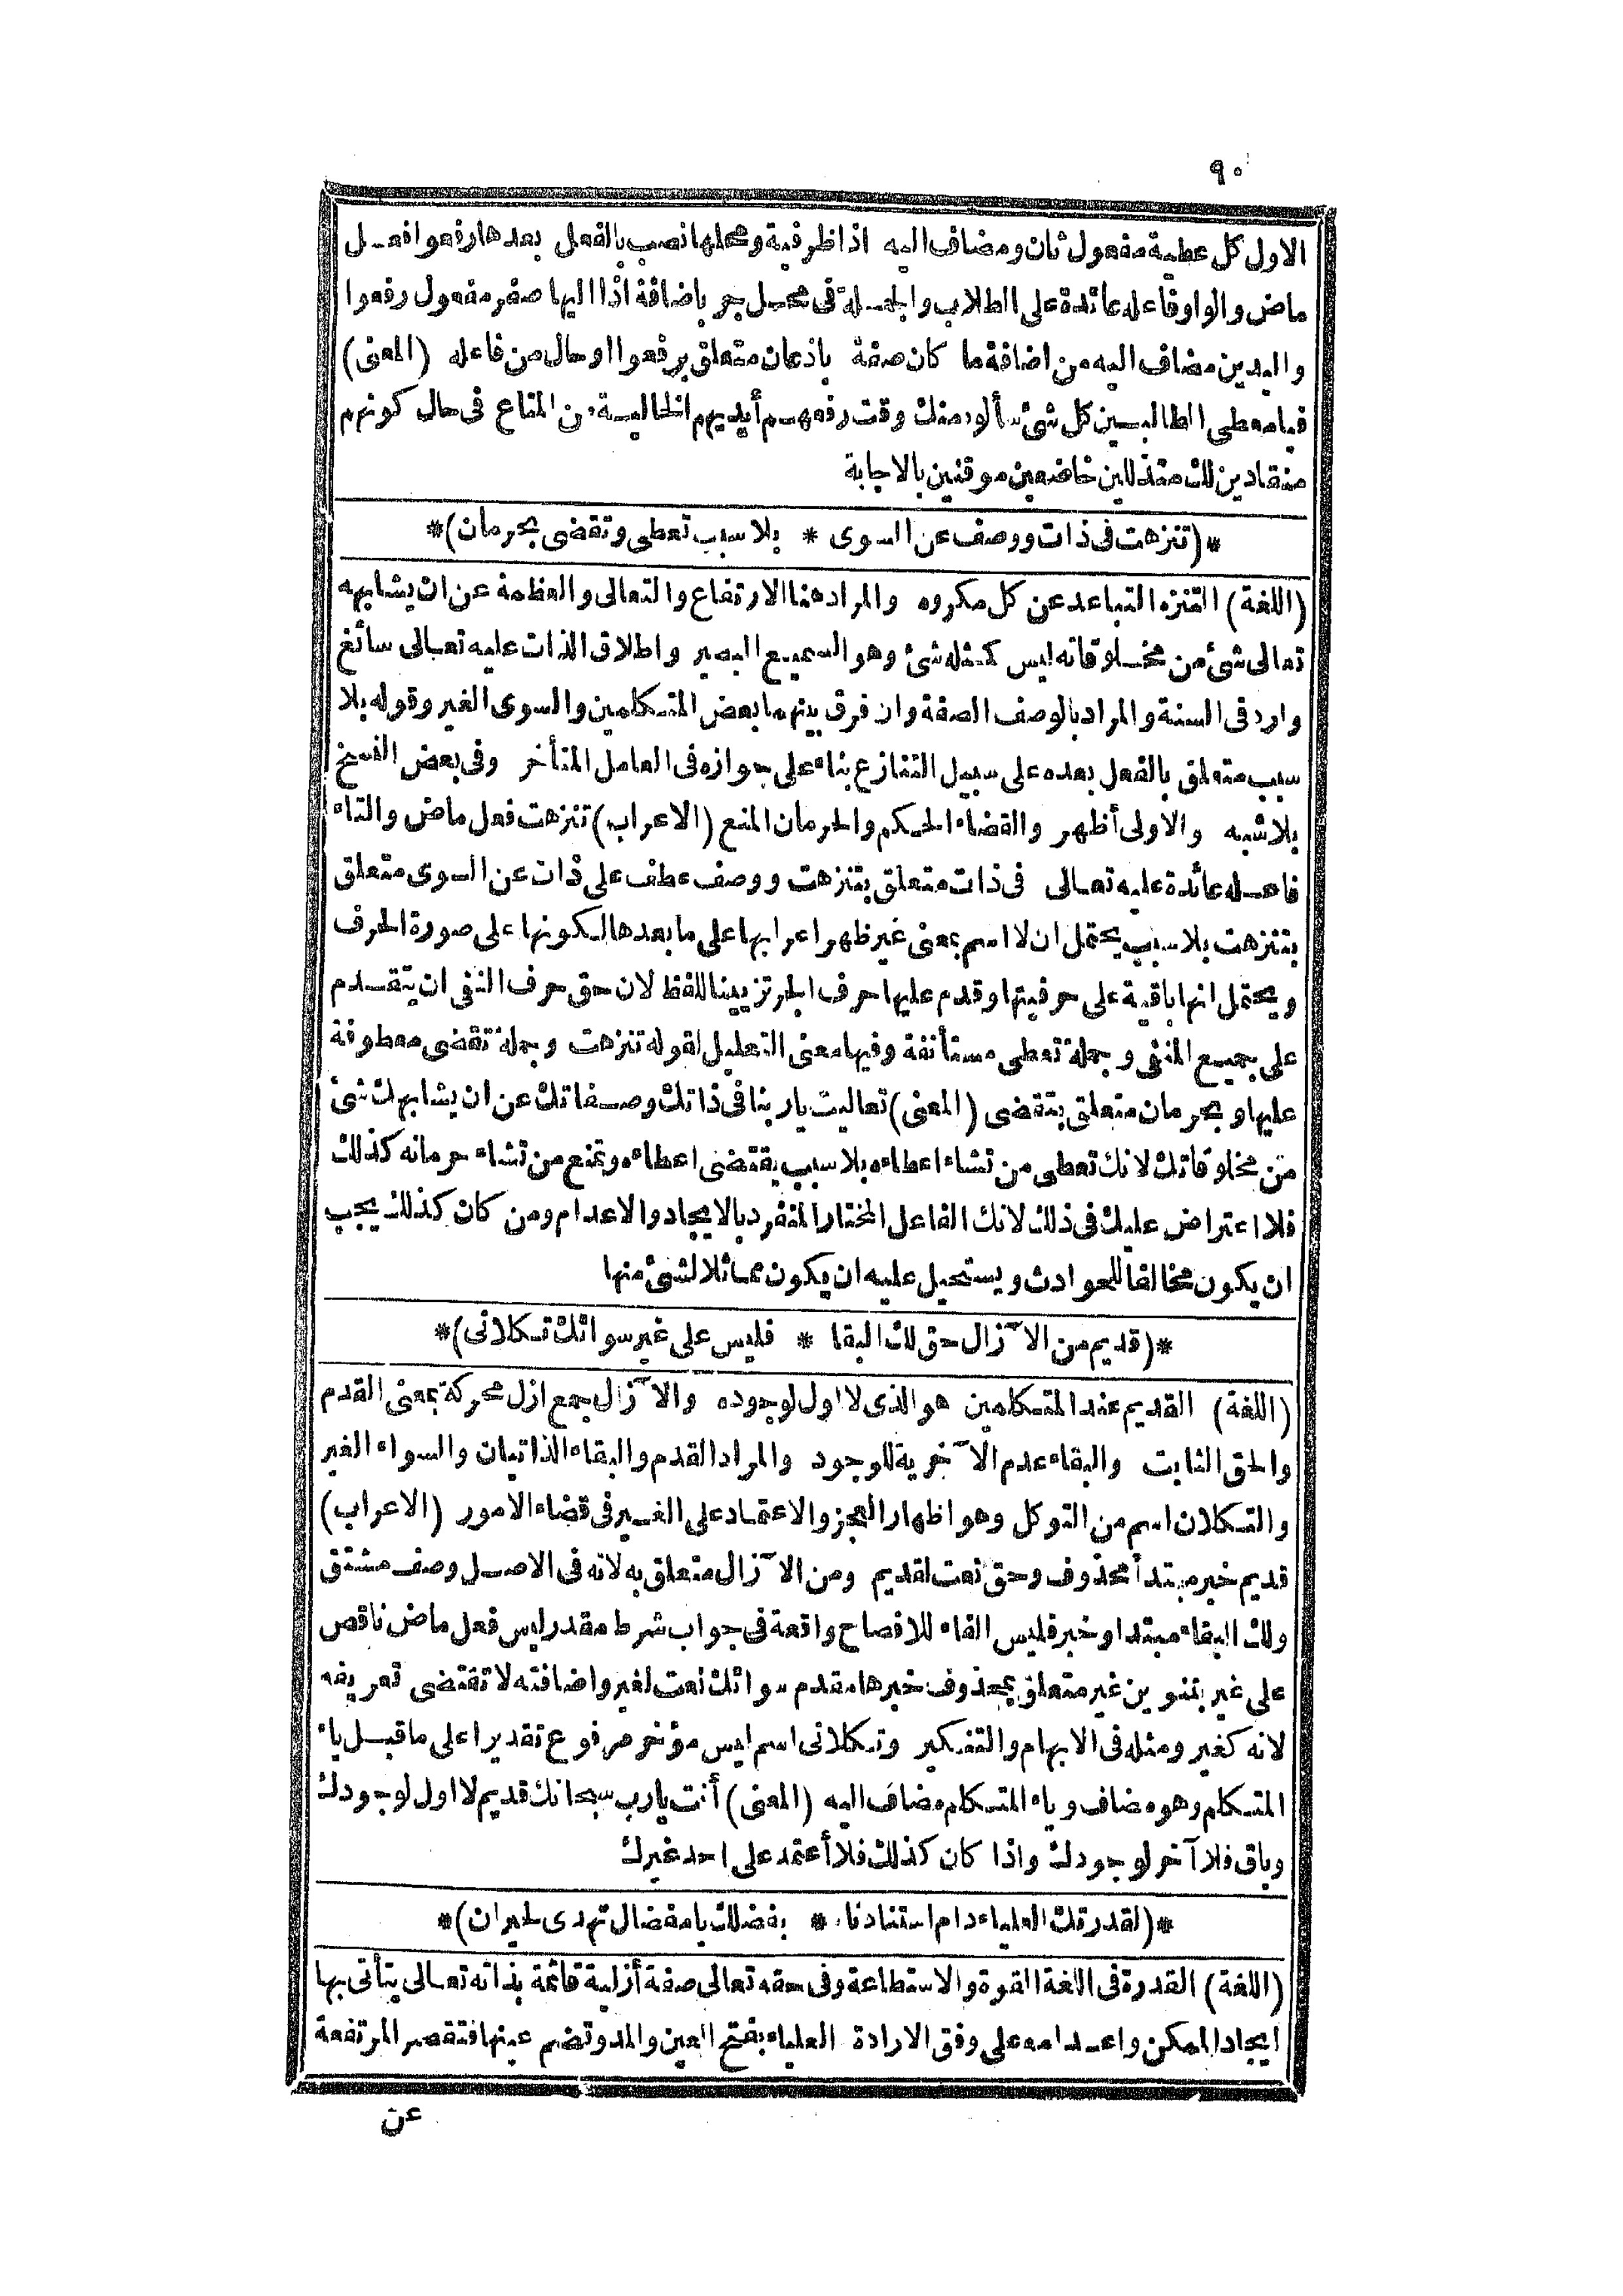 ٩٠
الاول كل عطية مفعول ثان ومضاف اليه اذا ظرفية ومحلها نصب بالفعل بعدها رفعوا فعل
ماض والواو فاعله عائدة على الطلاب والجملة فى محل جر باضافة اذا اليها صفر مفعول رفعوا
واليدين مضاف اليه من اضافة ما كان صفة باذعان متعلق برفعوا او حال من فاعله (المعنى)
فيا معطى الطالبين كل شئ سألوه منك وقت رفعهم أيديهم الخالية من المتاع فى حال كونهم
منقادين لك متذللين خاضعين موقنين بالاجابة
*(تنزهت فى ذات ووصف عن السوى * بلا سبب تعطى وتقضى بحرمان)*
(اللغة) التنزه التباعد عن كل مكروه والمراد هنا الارتفاع والتعالى والعظمة عن ان يشابهه
تعالى شئ من مخلوقاته ليس كمثله شئ وهو السميع البصير واطلاق الذات عليه تعالى سائغ
وارد فى السنة والمراد بالوصف الصفة وان فرق بينهما بعض المتكلمين والسوى الغير وقوله بلا
سبب متعلق بالفعل بعده على سبيل التنازع بناء على جوازه فى العامل المتأخر وفى بعض النسخ
بلا شبه والاولى أظهر والقضاء الحكم والحرمان المنع (الاعراب) تنزهت فعل ماض والتاء
فاعله عائدة عليه تعالى فى ذات متعلق بتنزهت ووصف عطف على ذات عن السوى متعلق
بتنزهت بلا سبب يحتمل ان لا اسم بمعنى غير ظهر اعرابها على ما بعدها لكونها على صورة الحرف
ويحتمل انها باقية على حرفيتها وقدم عليها حرف الجر تزيينا للفظ لان حق حرف النفى ان يتقدم
على جميع المنفى وجملة تعطى مستأنفة وفيها معنى التعليل لقوله تنزهت وجملة تقضى معطوفة
عليها وبحرمان متعلق بتقضى (المعنى) تعاليت يا ربنا فى ذاتك وصفاتك عن ان يشابهك شئ
من مخلوقاتك لانك تعطى من تشاء اعطاءه بلا سبب يقتضى اعطاءه وتمنع من تشاء حرمانه كذلك
فلا اعتراض عليك فى ذلك لانك الفاعل المختار المنفرد بالايجاد والاعدام ومن كان كذلك يجب
ان يكون مخالفا للحوادث ويستحيل عليه ان يكون مماثلا لشئ منها
*(قديم من الآزال حق لك البقا * فليس على غير سوائك تكلانى)*
(اللغة) القديم عند المتكلمين هو الذى لا اول لوجوده والآزال جمع ازل محركة بمعنى القدم
والحق الثابت والبقاء عدم الآخرية للوجود والمراد القدم والبقاء الذاتيان والسواء الغير
والتكلان اسم من التوكل وهو اظهار العجز والاعتماد على الغير فى قضاء الامور (الاعراب)
قديم خبر مبتدأ محذوف وحق نعت لقديم ومن الآزال متعلق به لانه فى الاصل وصف مشتق
ولك البقاء مبتدا وخبر فليس الفاء للافصاح واقعة فى جواب شرط مقدر ليس فعل ماض ناقص
على غير بتنوين غير متعلق بمحذوف خبرها مقدم سوائك نعت لغير واضافته لا تقتضى تعريفه
لانه كغير ومثله فى الابهام والتنكير وتكلانى اسم ليس مؤخر مرفوع تقديرا على ما قبل ياء
المتكلم وهو مضاف وياء المتكلم مضاف اليه (المعنى) أنت يارب سبحانك قديم لا اول لوجودك
وباق فلا آخر لوجودك واذا كان كذلك فلا أعتمد على احد غيرك
*(لقدرتك العلياء دام استنادنا * بفضلك يا مفضال تهدى لحيران)*
(اللغة) القدرة فى اللغة القوة والاستطاعة وفى حقه تعالى صفة أزلية قائمة بذاته تعالى يتأتى بها
ايجاد الممكن واعدامه على وفق الارادة العلياء بفتح العين والمد وتضم عينها فتقصر المرتفعة
عن